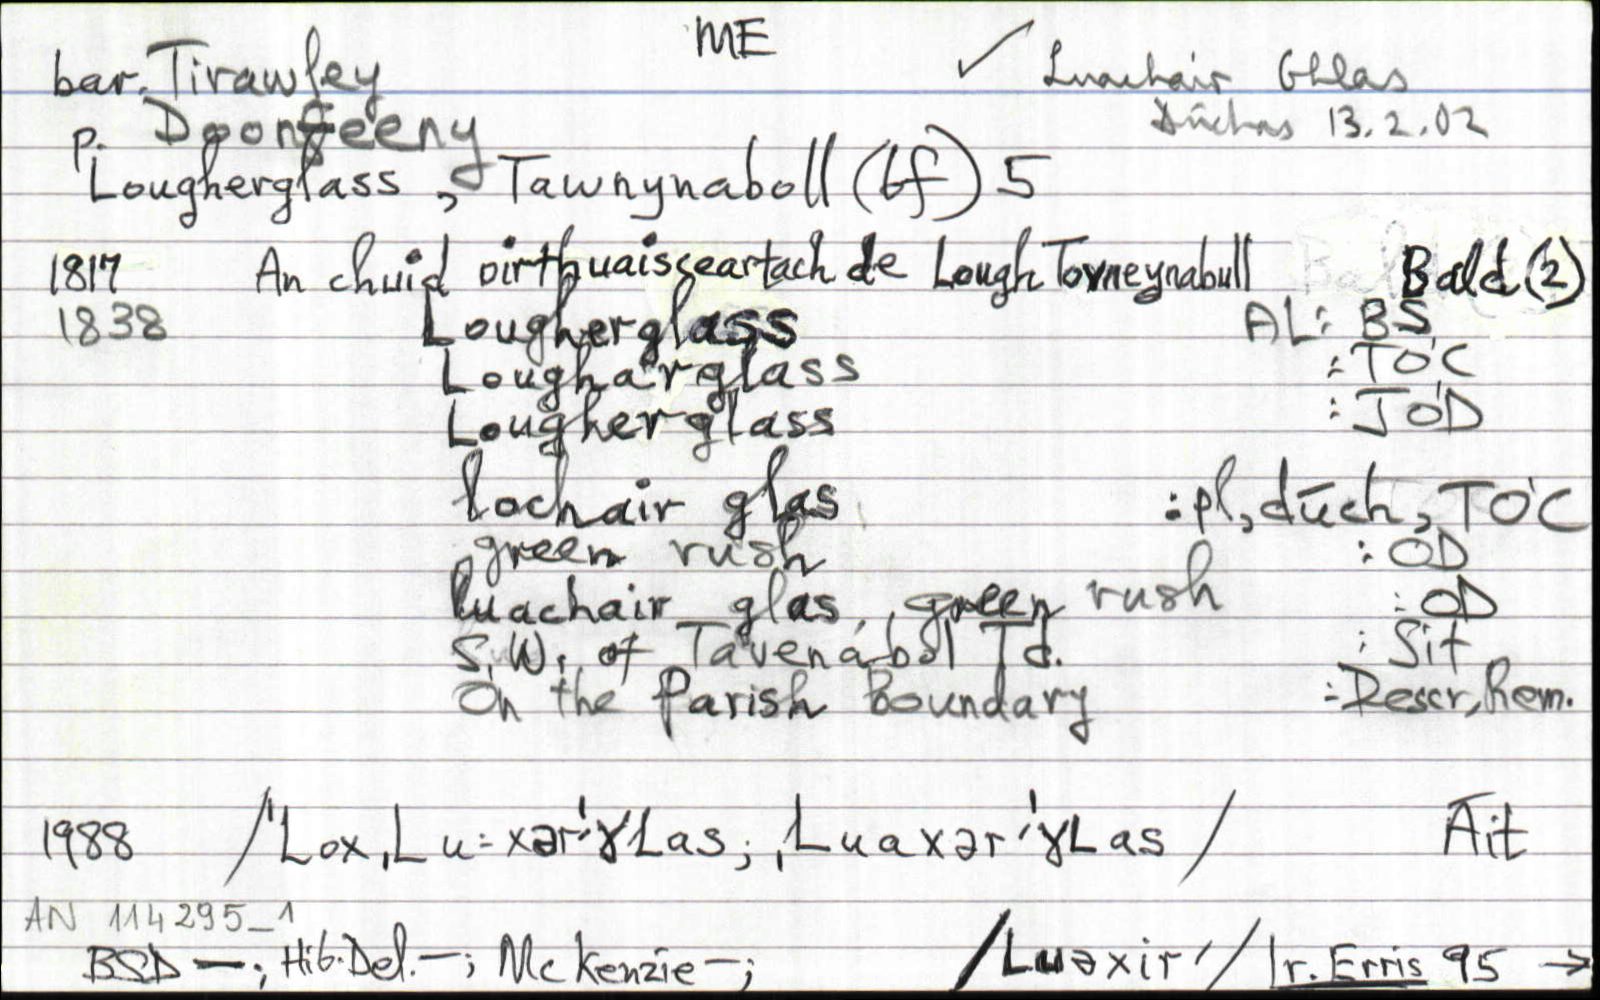 ME
bar. Tirawley
✓ Luachair Ghlas
p. Doonfeeny
Dúchas 13.2.02
Lougherglass, Tawnynaboll (bf) 5
1817 An chuid oirthuaisceartach de Lough Tovneynabull Bald (2)
1838 Lougherglass AL: BS
Lougharglass : TO'C
Lougherglass : JO'D
lochair glas : pl, dúch, TO'C
green rush : OD
luachair glas, green rush : OD
S.W. of Tavenabol Td. : Sit
On the Parish Boundary : Descr, Rem.
1988 /ˈLox,Lu:xərʹˈɣLas; ,LuaxərʹˈɣLas/ Áit
AN 114295_1
BSD —; Hib. Del. —; McKenzie —; /Luəxirʹ/ Ir. Erris 95 →